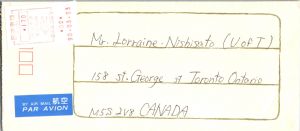 Mr. Lorraine. Nishisato (U of T)
158 St. George st Toronto Ontario
M5S 2V8 CANADA
BY AIR MAIL 航空
PAR AVION